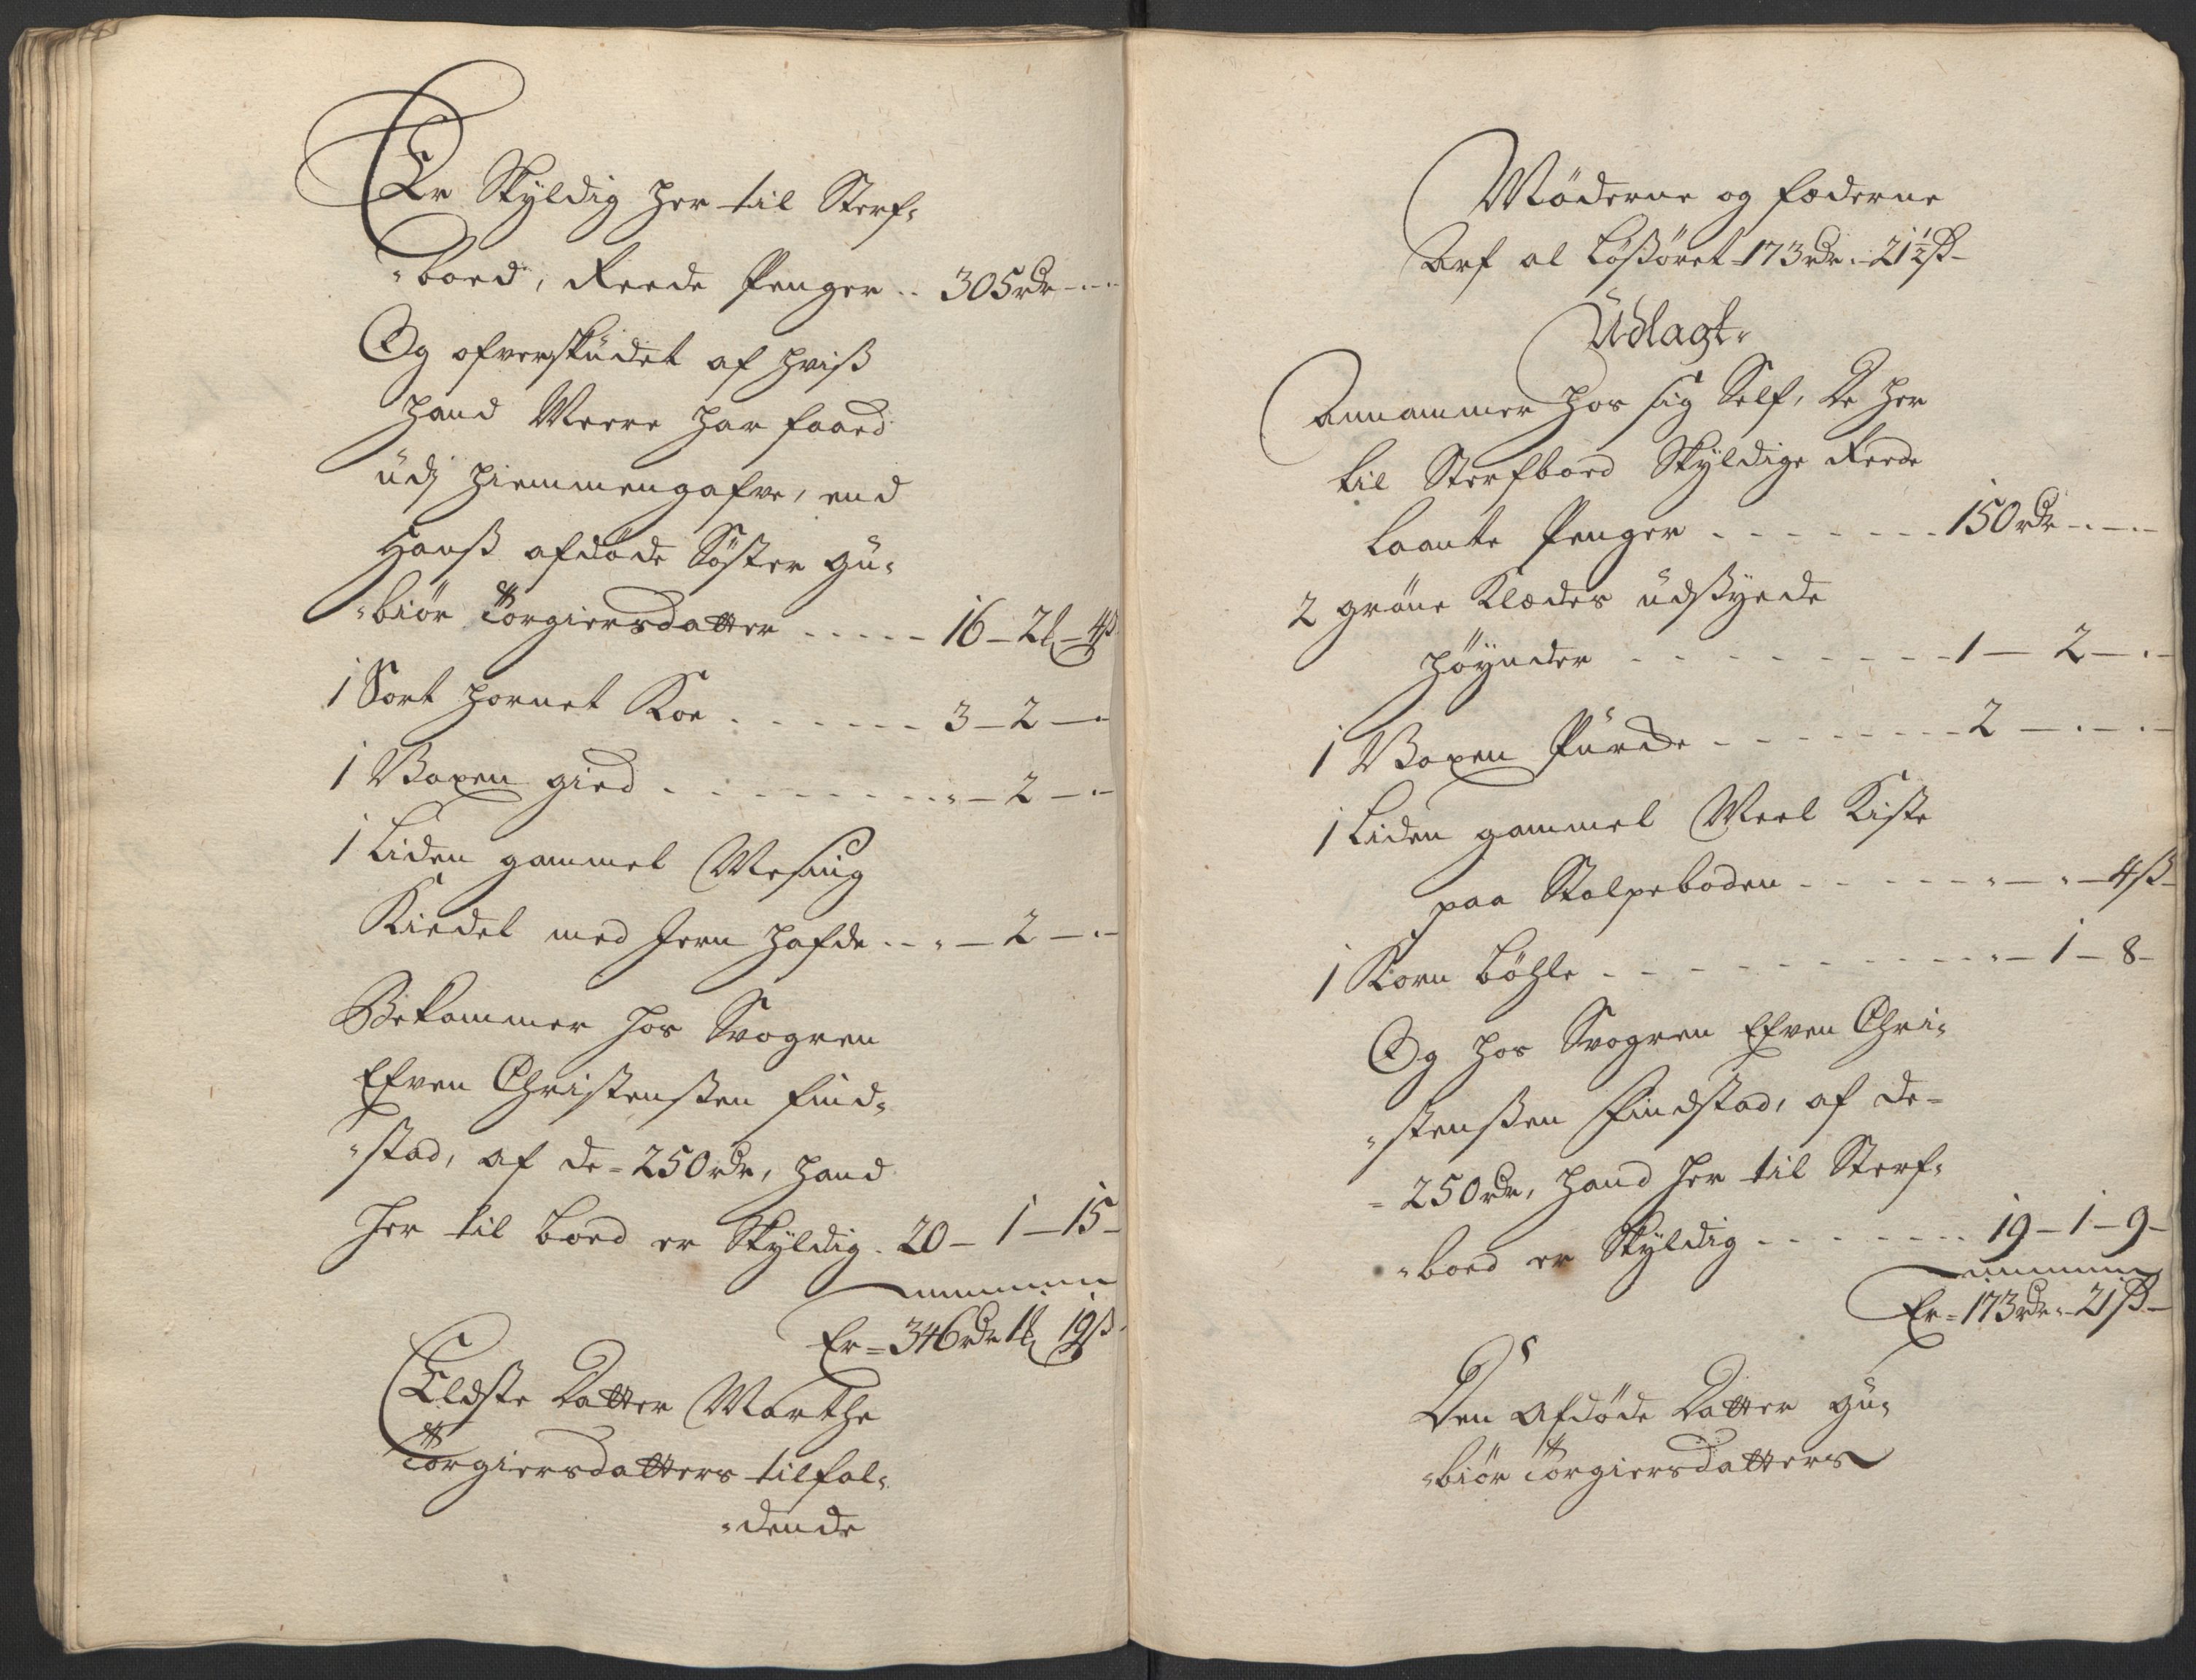 Er Skyldig her til Sterf-
-boed, Reede Penger .. 305 rdr - . -
Og ofverskudet af hviß
hand Meere har faaed
udj hiemmengafve, end
Hanß afdøde Søster Gu-
-biør Torgiersdatter ..... 16 - 2 ₰ - 4 ß
1 Sort hornet Koe ....... 3 - 2 - . -
1 Voxen gied ......... " - 2 - . -
1 Liden gammel Mesing
Kiedel med Jern hafde .. " - 2 - . -
Bekommer hos Svogren
Efven Christenßen Find-
-stad, af de = 250 rdr, hand
her til boed er Skyldig . 20 - 1 - 15 -
Er = 346 rdr 1 ₰ 19 ß
Eldste Datter Marthe
Torgiersdatters tilfal-
-dende
Møderne og fæderne
Arf al Løßøret 173 rdr . 21½ ß -
Udlagt.
Annammer hos sig Self, De her
til Sterfboed Skyldige Reede
Laante Penger ....... 150 rdr - . -
2 grøne Klædes udsyede
høynder ......... 1 - 2 - . -
1 Voxen Purcke ........ 2 - . - . -
1 Liden gammel Meel Kiste
paa Stolpeboden ...... " - " - 4 ß -
1 Korn Bøhle .......... " - 1 - 8 -
Og hos Svogren Efven Chri-
-stenßen Findstad, af de =
= 250 rdr, hand her til Sterf-
-boed er Skyldig ....... 19 - 1 - 9 -
Er = 173 rdr . 21 ß -
Den Afdøde Datter Gu-
-biør Torgiersdatters